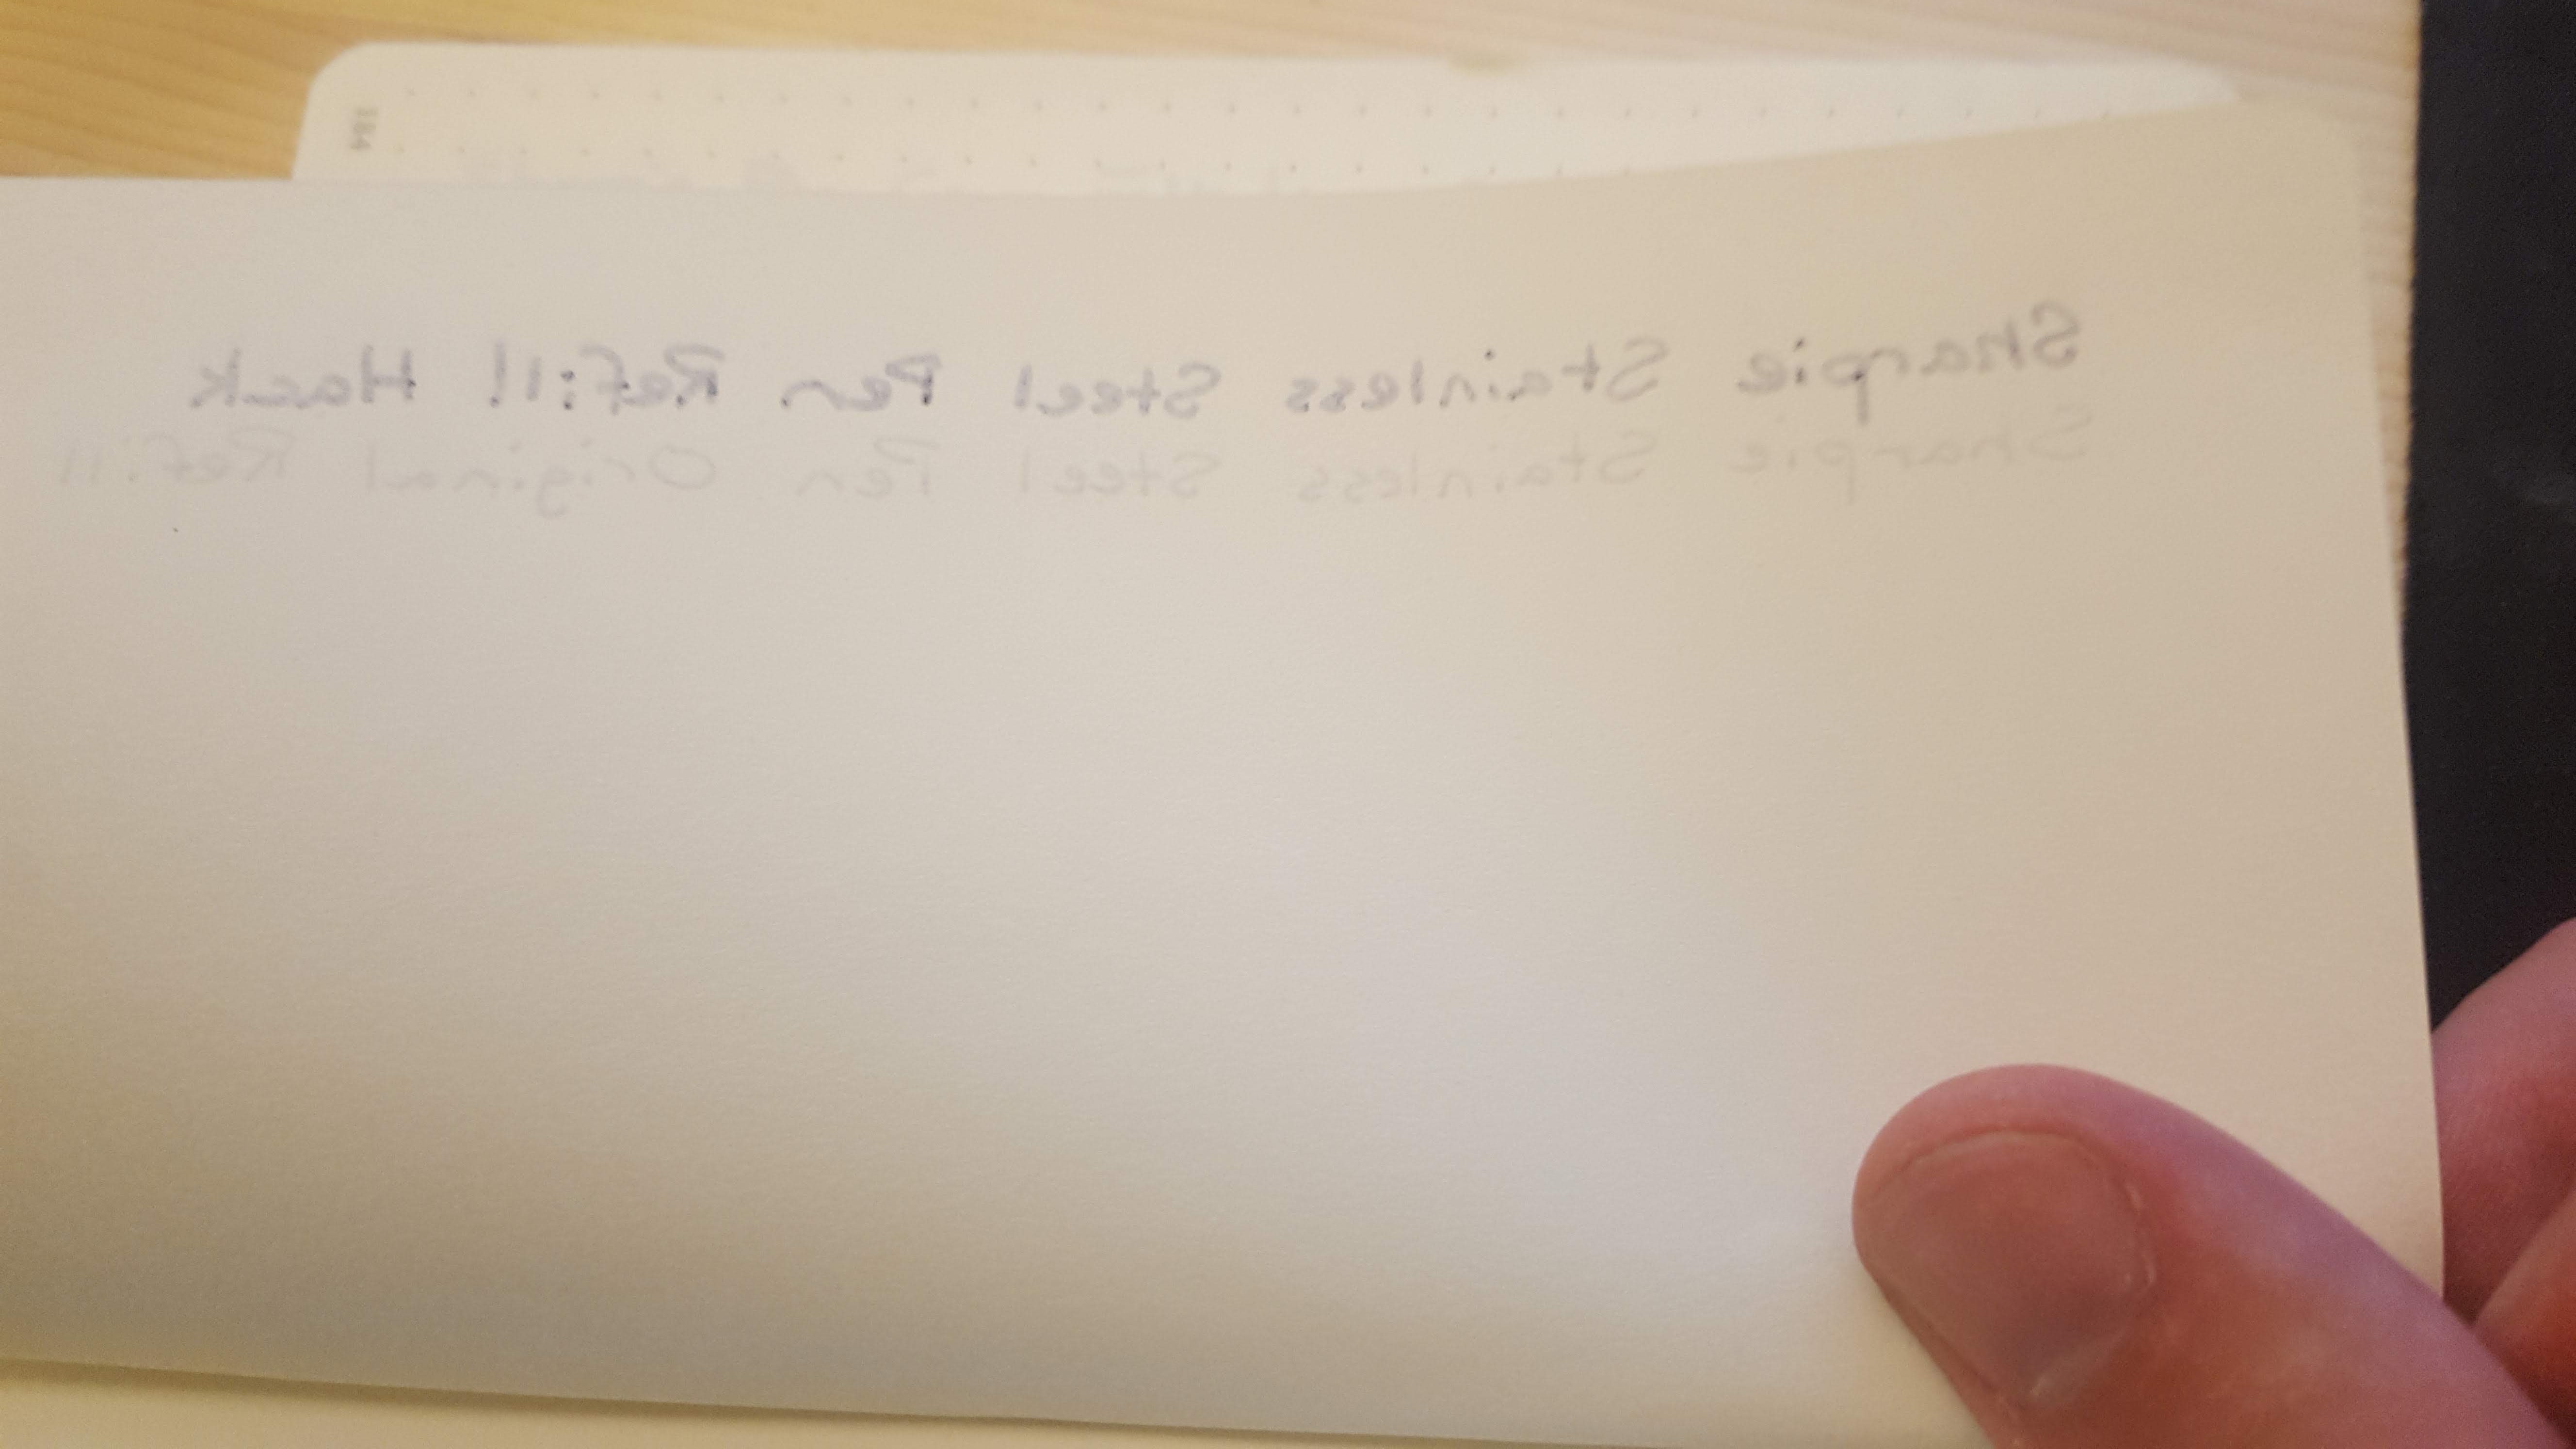 184
Sharpie Stainless Steel Pen Refill Hack
Sharpie Stainless Steel Pen Original Refill